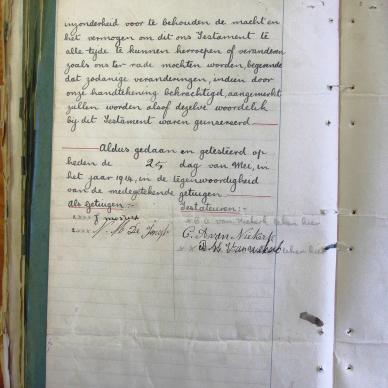 inzonderheid voor te behouden de macht en
het vermogen om dit ons Testament te
alle tyde te kunnen herroepen of veranderen
zoals ons te rade mochten worden, begeerende
dat zodanige veranderingen, indien door
onze handtekening bekrachtigd, aangemerkt
zullen worden alsof dezelve woordelik
by dit Testament waren geinsereerd.
Aldus gedaan en getesteerd op
heden de 25 dag van Mei, in
het jaar 1914, in de tegenwoordigheid
van de medegetekende getuigen.
Als getuigen:- Testateuren:-
van Niekerk teken hier
N. M. De Jongh C. A van Niekerk
van Niekerk teken hier